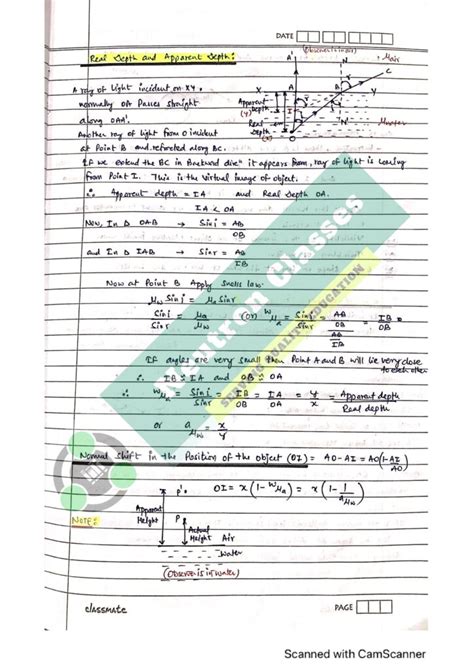 DATE
(Observer is in air)
Real Depth and Apparent Depth:
A' N C
μ air
A ray of light incident on XY,
X A B Y
normally OA Passes straight
Apparent Depth (y)
along OAA'.
I
Real Depth (x)
Another ray of light from O incident
O N'
μ water
at Point B and refracted along BC.
If we extend the BC in Backward direⁿ it appears from, ray of light is coming
from Point I. This is the virtual image of object.
∴ Apparent depth = IA and Real Depth OA.
IA < OA
Now, In Δ OAB → Sin i = AB/OB
and In Δ IAB → Sin r = AB/IB
Now at Point B Apply Snell's law:
μw Sin i = μa Sin r
Sin i/Sin r = μa/μw (or) ʷμa = Sin i/Sin r = (AB/OB)/(AB/IB) = IB/OB
If angles are very small then Point A and B will be very close
to each other
∴ IB ≈ IA and OB ≈ OA
∴ ʷμa = Sin i/Sin r = IB/OB = IA/OA = y/x = Apparent depth/Real depth
or ᵃμw = x/y
Normal Shift in the Position of the object (OI) = AO-AI = AO(1-AI/AO)
P' OI = x(1-ʷμa) = x(1-1/ᵃμw)
Apparent Height
P
Note:
Actual Height Air
Water
(Observer is in water)
Neutron Classes
SURVIVAL QUALITY EDUCATION
classmate
PAGE
Scanned with CamScanner